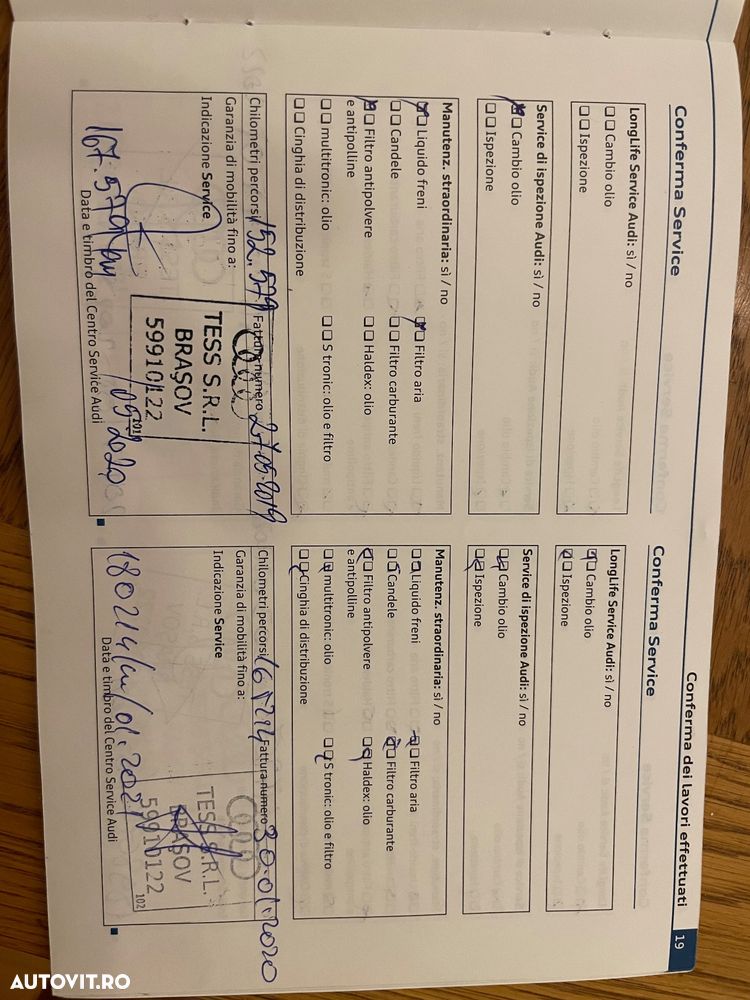 Conferma dei lavori effettuati
19
Conferma Service
LongLife Service Audi: sì / no
Cambio olio
Ispezione
Service di ispezione Audi: sì / no
Cambio olio
Ispezione
Manutenz. straordinaria: sì / no
Liquido freni
Filtro aria
Candele
Filtro carburante
Filtro antipolvere
e antipolline
Haldex: olio
multitronic: olio
S tronic: olio e filtro
Cinghia di distribuzione
Chilometri percorsi 152.579 Fattura numero 27.05.2019
Garanzia di mobilità fino a:
Indicazione Service
TESS S.R.L.
BRAŞOV
59910122
167.579 km 05.2020
Data e timbro del Centro Service Audi
Conferma Service
LongLife Service Audi: sì / no
Cambio olio
Ispezione
Service di ispezione Audi: sì / no
Cambio olio
Ispezione
Manutenz. straordinaria: sì / no
Liquido freni
Filtro aria
Candele
Filtro carburante
Filtro antipolvere
e antipolline
Haldex: olio
multitronic: olio
S tronic: olio e filtro
Cinghia di distribuzione
Chilometri percorsi 165214 Fattura numero 30.01.2020
Garanzia di mobilità fino a:
Indicazione Service
Audi
TESS S.R.L.
BRAŞOV
59910122
102
180214 km/01.2021
Data e timbro del Centro Service Audi
AUTOVIT.RO